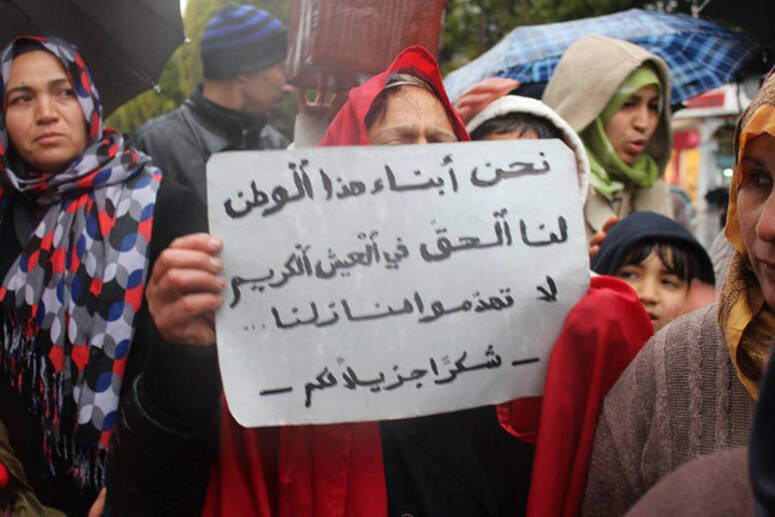 نحن أبناء هذا الوطن
لنا الحق في العيش الكريم
لا تهدموا منازلنا ...
- شكرًا جزيلاً لكم -